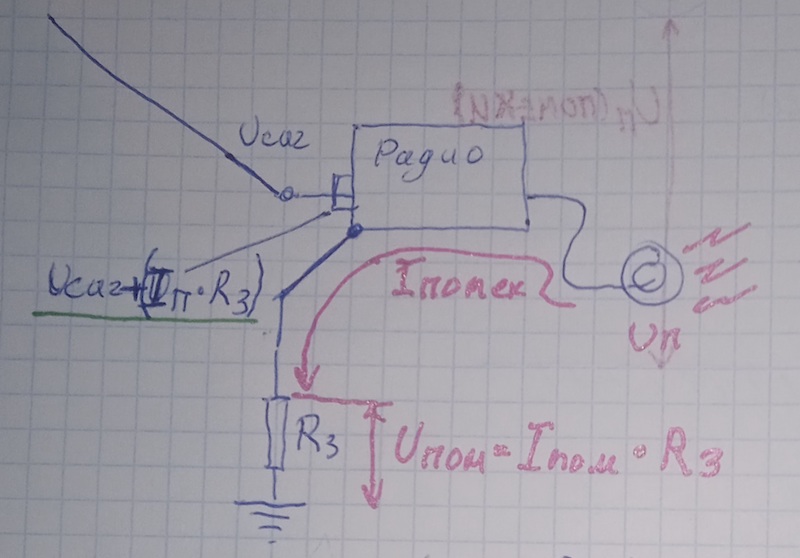 Uсаг
Радио
Uсаг+(Iп·Rз)
Iпомех
Uп
Rз
Uпом=Iпом·Rз